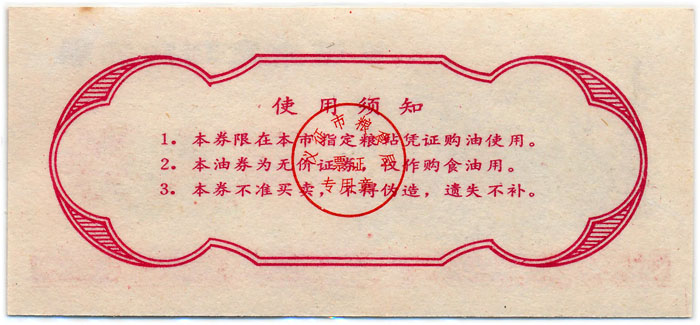 使用须知
1。本券限在本市指定粮站凭证购油使用。
2。本油券为无价证券，仅作购食油用。
3。本券不准买卖，不得伪造，遗失不补。
市粮食局
票证
专用章